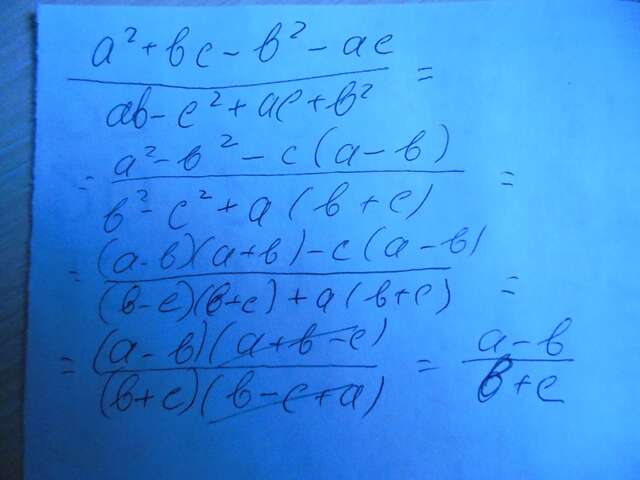 a² + bc - b² - ac
ab - c² + ac + b² =
= a² - b² - c(a - b)
b² - c² + a(b + c) =
= (a - b)(a + b) - c(a - b)
(b - c)(b + c) + a(b + c) =
= (a - b)(a + b - c) = a - b
(b + c)(b - c + a) b + c